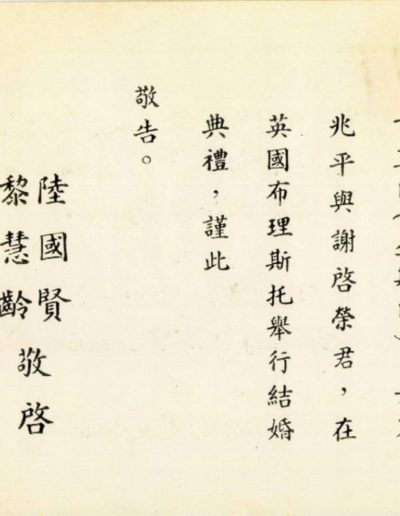 兆平與謝啓榮君，在
英國布理斯托舉行結婚
典禮，謹此
敬告。
陸國賢
黎慧齡
敬啓